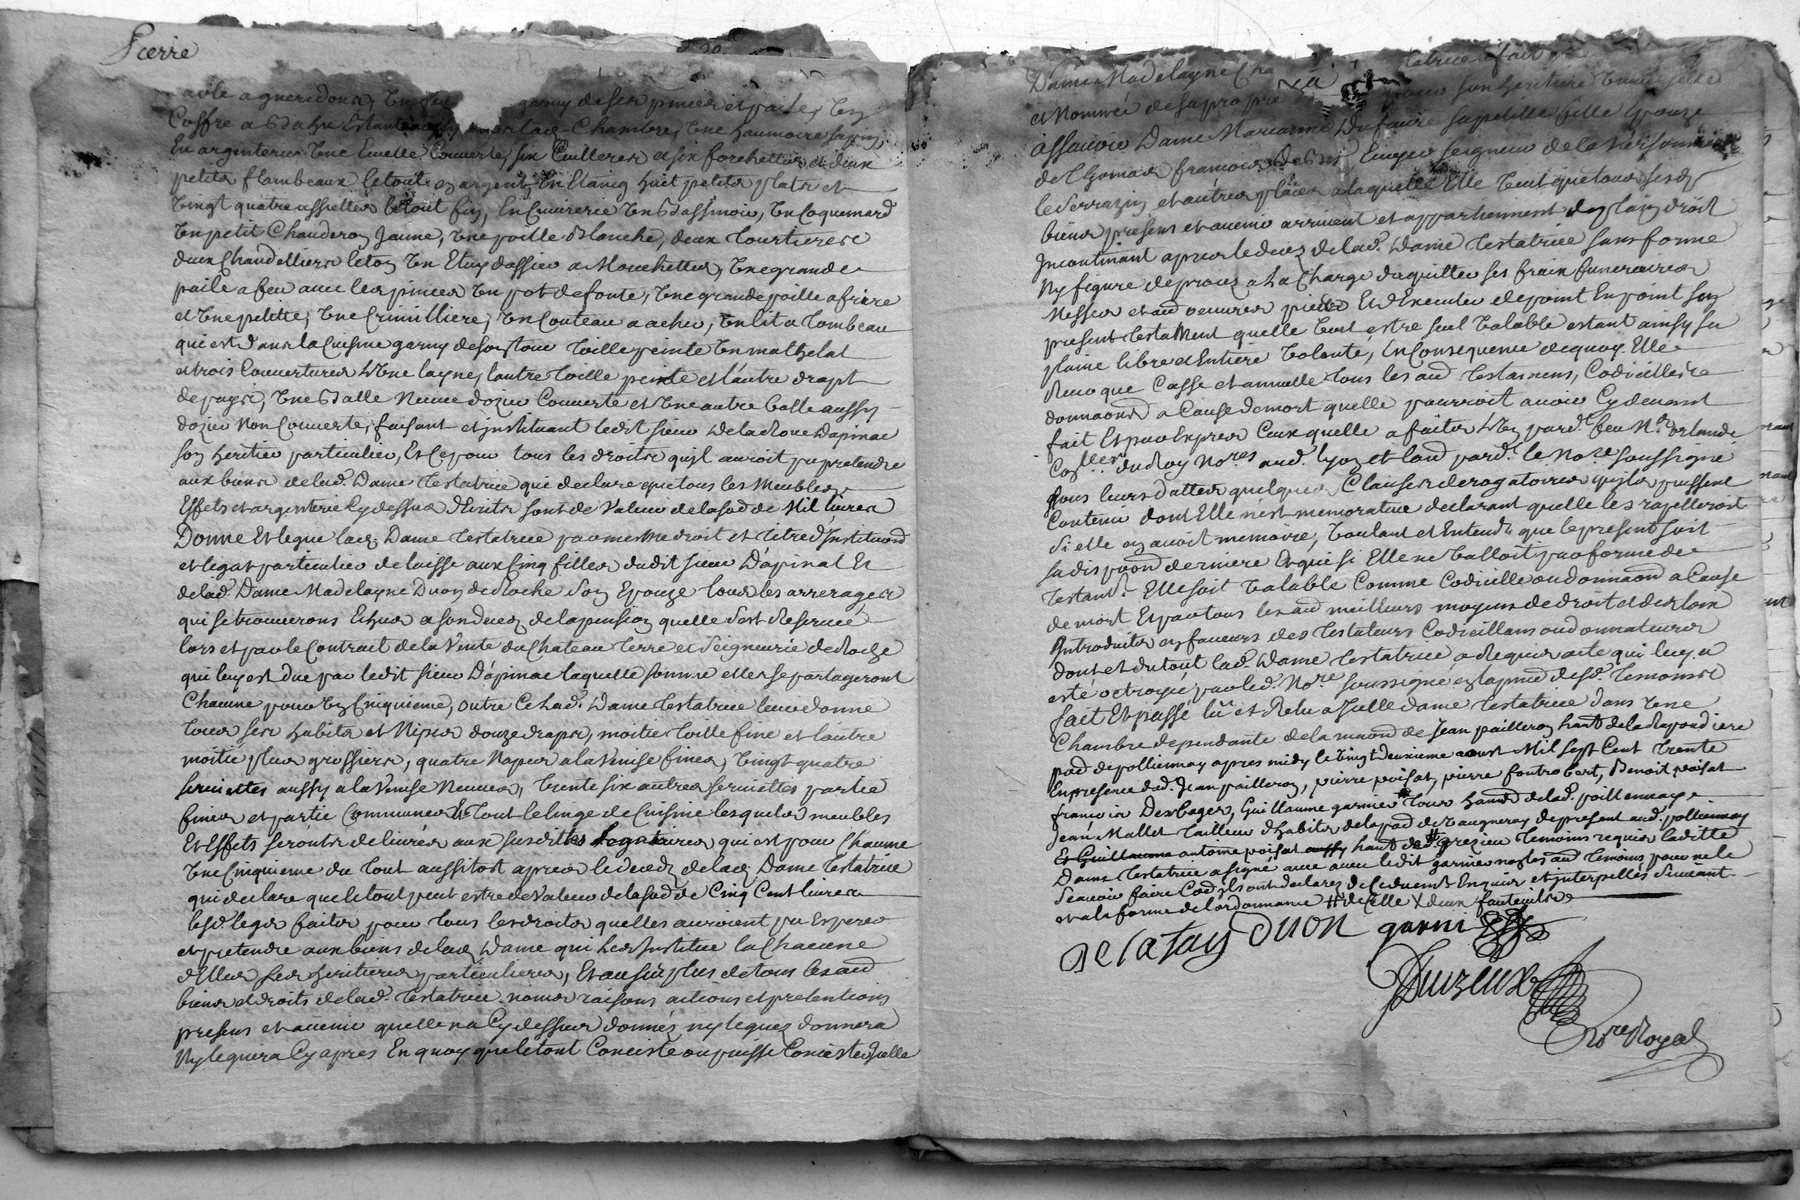 Pierre
garny de ses pincer et paile, Un
Coffre a Bahu Chambre, Une
En argenterie Une Ecuelle Couverte, six Cuilleres et six forchettes et deux
petits flambeaux le tout en argent, En Etaing huit petits plats et
Vingt quatre assiettes le tout fin, En Cuivrerie Un Bassinoir, Un Coquemard
Un petit Chauderon Jaune, Une poille Blanche, deux tourtieres
deux Chandelliers leton Un Etuy dassier a Mouchettes, Une grande
paile a feu avec les pinces Un pot de fonte, Une grande poille a frire
et Une petitte, Une Crimilliere, Un Couteau a acher, Un lit a Tombeau
qui est dans la Cuisine garny de son tour toille peinte Un mathelat
et trois Couvertures d'Une layne, lautre toille peinte et l'autre drapt
de pays, Une Balle Neuve dozier Couverte et Une autre balle aussy
dozier Non Couverte, faisant et instituant ledit sieur Delaroue Dapinac
son heritier particulier, Et ce pour tous les droits quil auroit pu pretendre
aux biens de lad. Dame testatrice qui declare que tous les Meubles
Effets et argenterie Cydessus Ecrits sont de Valeur de la so de Mil livres
Donne Et legue lad. Dame testatrice par mesme droit et titre d'Institution
et legat particulier delaisse aux Cinq filles dudit sieur D'apinac Et
de lad. Dame Madelayne Duon de Roche Son Epouze tous les arrerages
qui se trouverons Echus a son deces de la pension quelle s'est Reservée
lors et par le Contrat de la Vente du Chateau Terre et Seigneurie de Roche
qui luy est due par ledit sieur D'apinac laquelle somme elles se partageront
Chacune pour Un Cinquieme, outre Ce lad. Dame testatrice leur donne
tous ses habits et Nipes douze draps, moitie toille fine et l'autre
moitie plus grossiere, quatre Napes a la Venise fines, Vingt quatre
serviettes aussy a la Venise Neuves, trente six autres serviettes partie
fines et partie Communes Et tout le linge de Cuisine lesquels meubles
Et Effets seronts delivres aux susdittes legataires qui est pour Chacune
Une Cinquieme du tout aussitost apres le deceds de lad. Dame testatrice
qui declare que le tout peut estre de Valeur de la so de Cinq Cent livres
lesd. legs faits pour tous les droits quelles auroient pu Esperer
et pretendre aux biens de lad. Dame qui les Institue la Chacune
d'Elles ses heritieres particulieres, Et au surplus de tous les aud
biens et droits de lad. testatrice noms raisons actions et pretentions
presens et avenir quelle na Cy dessus donnés ny legués donnera
Ny leguera Cyapres En quoy que le tout Conciste ou puisse Concister Icelle
Dame Madelayne tatrice a fait
et Nommée de sa propre son heritiere Universelle
assavoir Dame Marianne Dufaure sa petitte fille Epouze
de Thomas francois Ecuyer seigneur de la
le Serrazin et autres places a laquelle Elle Veut que tous sesd.
biens presens et avenir arrivent et appartiennent de plain droit
Incontinant apres le deces de lad. Dame testatrice sans forme
Ny figure de proces a La Charge daquitter ses fraix funeraires
Messes et aud oeuvres pies Et d'Executer de point En point son
present testament quelle Veut estre seul Valable estant ainsy sa
plaine libre et Entiere Volonté, En Consequence de quoy Elle
Revoque Casse et annulle tous les aud testamens, Codicilles et
donnaons a Cause de mort quelle pourroit avoir Cydevant
fait Et par Exprés Ceux quelle a faits d'Un pard. feu Me orlande
Coner du Roy Nores aud. Lyon et laud pard. le Nore soussigné
sous leurs dattes quelques Clauses derogatoires quils puissent
Contenir dont Elle n'est memorative declarant quelle les rapelleroit
si elle en avoit memoire, Voulant et Entend. que le present soit
sa dispoon derniere Et que si Elle ne Valloit par forme de
Testamt. Elle soit Valable Comme Codicille ou donnaon a Cause
de mort Et par tous les aud meilleurs moyens de droit et des loix
Introduites en faveurs des testateurs Codicillans ou donnateurs
dont et du tout lad. Dame testatrice a Requis acte qui luy a
esté octroyé par led. Nore soussigné en la pnce desd. temoins
fait Et passé lû et Relu a Icelle dame testatrice dans Une
Chambre dependante de la maon de Jean pailleron hant de la Repardiere
paroisse de pollionnay apres midy le Vingt deuxieme aoust Mil sept Cent trente
En presence dud. Jean pailleron, pierre poisat, pierre fontrobert, Benoit poisat
francois Desbages, Guillaume garnier tous hants de lad. poillennaye
Jean Mallet tailleur d'habits de la pse de Vaugneray de present aud. pollionnay
Et Guillaume antoine poisat aussy hant de grezieu temoins requis laditte
Dame testatrice a signé avec ledit garnier non les aud temoins pour ne le
scavoir faire Codils ont declarez de ce duemt Enquis et interpellés suivant
et a la forme de lordonnance # dicelle X deux fauteuils
De la fay Duon garni
Duzeux
Nore Royal